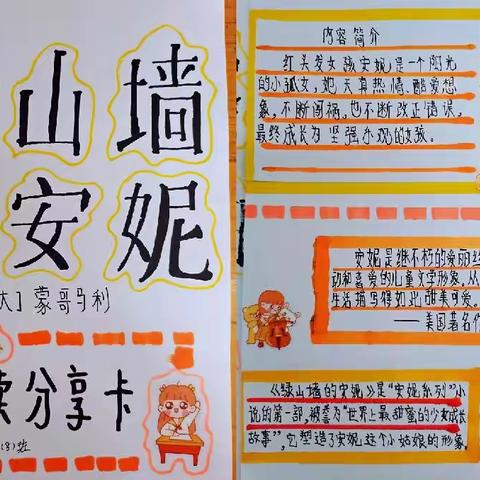 山墙
安妮
大］蒙哥马利
读分享卡
(8)班
内容简介
红头发女孩安妮是一个阳光
的小孤女，她天真热情、酷爱想
象，不断闯祸，也不断改正错误，
最终成长为坚强乐观的女孩。
安妮是继不朽的爱丽丝
动和喜爱的儿童文学形象，从
生活描写得如此甜美可爱。
——美国著名作
《绿山墙的安妮》是“安妮系列”小
说的第一部，被誉为“世界上最甜蜜的少女成长
故事”，它塑造了安妮这个小姑娘的形象。